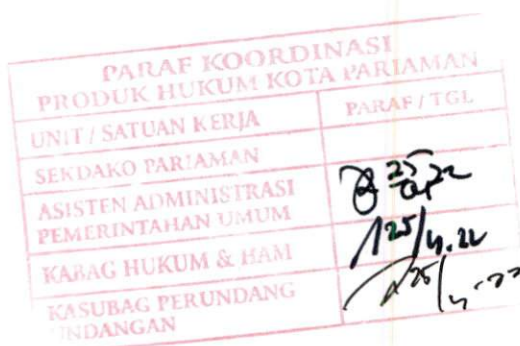 PARAF KOORDINASI
PRODUK HUKUM KOTA PARIAMAN
UNIT / SATUAN KERJA PARAF / TGL
SEKDAKO PARIAMAN
ASISTEN ADMINISTRASI
PEMERINTAHAN UMUM
KABAG HUKUM & HAM 25/4.22
KASUBAG PERUNDANG
UNDANGAN